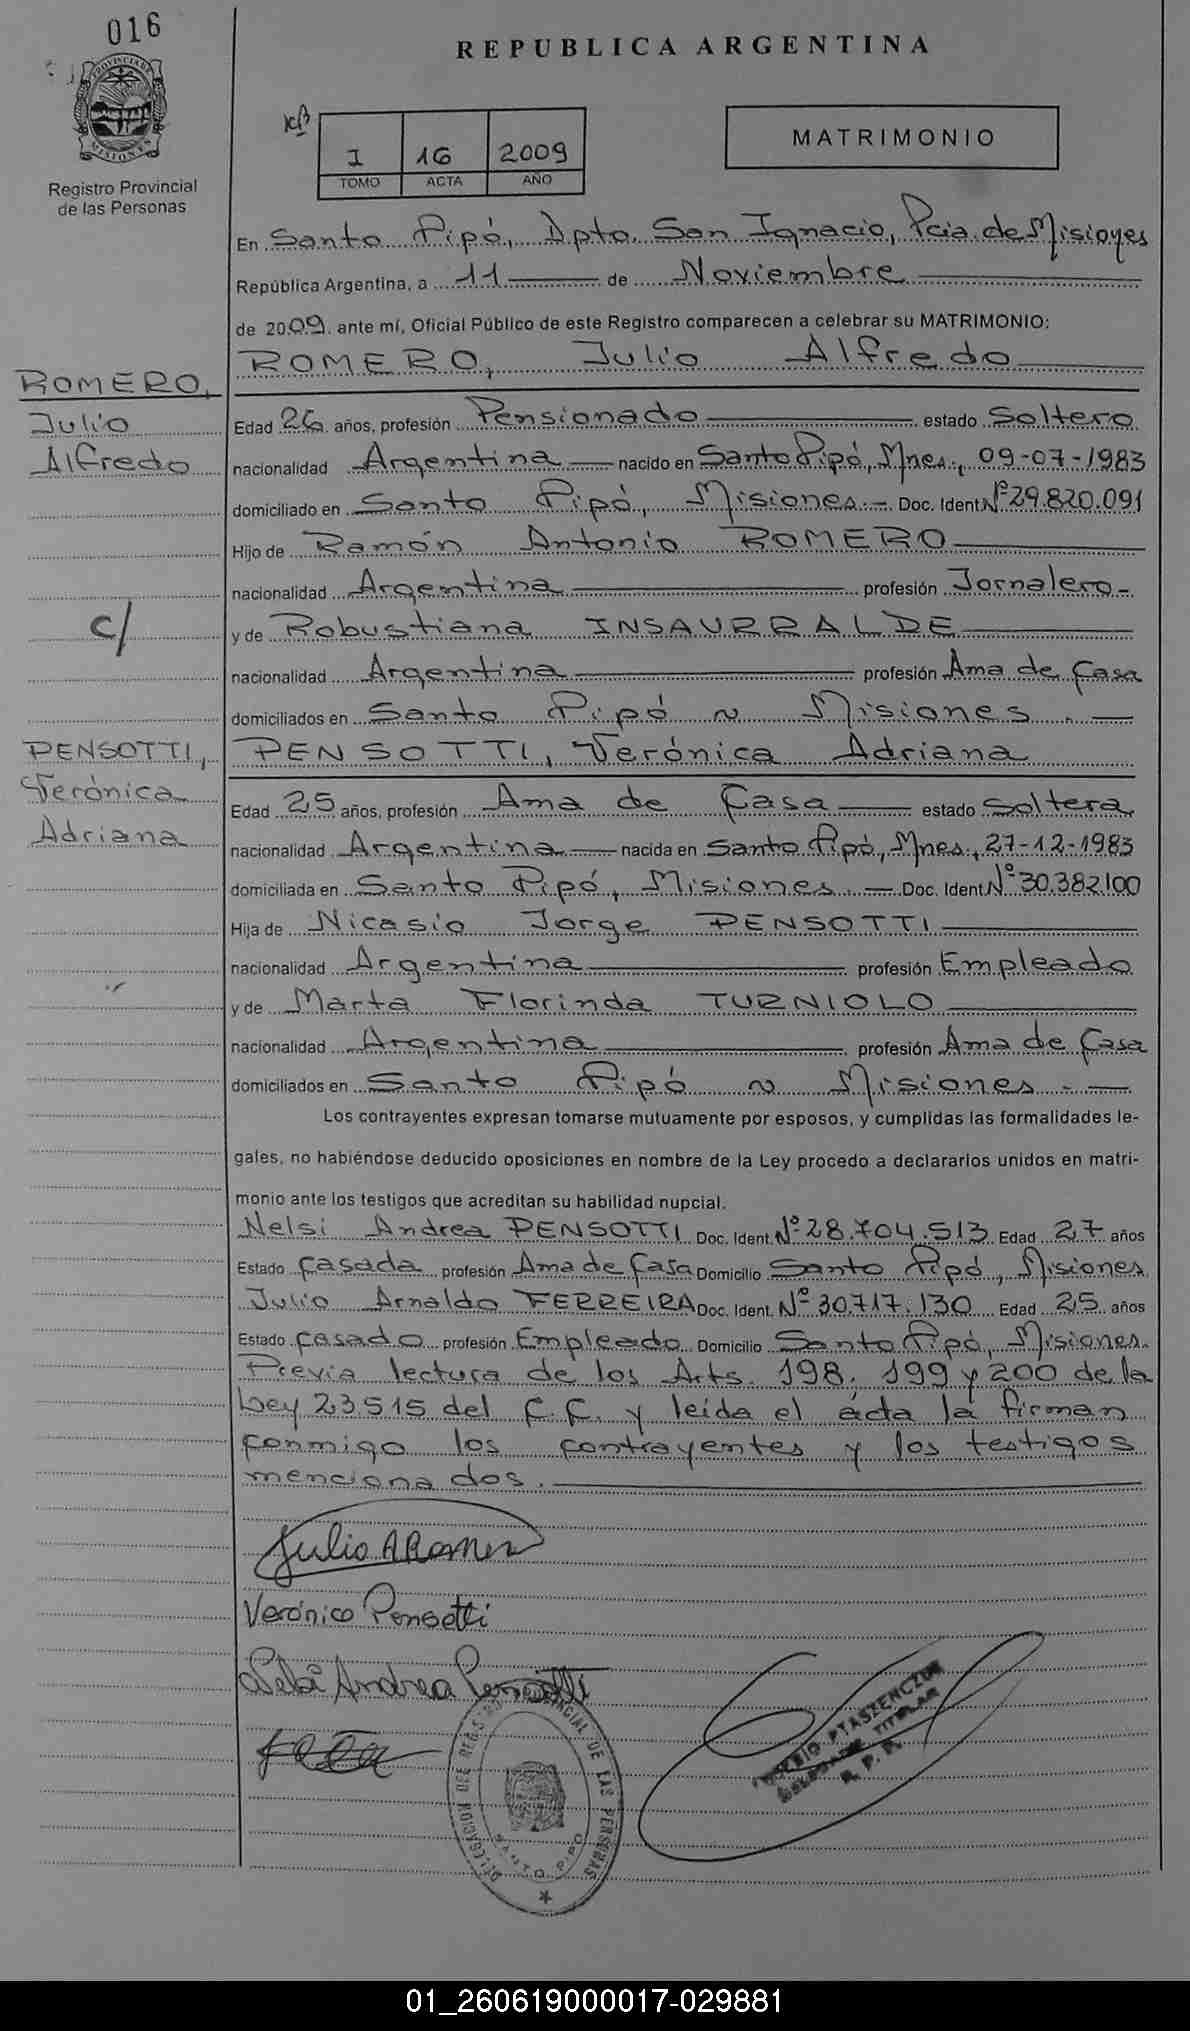 016
PROVINCIA DE
MISIONES
Registro Provincial
de las Personas
REPUBLICA ARGENTINA
I 16 2009
TOMO ACTA AÑO
MATRIMONIO
En Santo Pipó, Dpto. San Ignacio, Pcia. de Misiones
República Argentina, a 11 de Noviembre
de 2009. ante mí, Oficial Público de este Registro comparecen a celebrar su MATRIMONIO:
ROMERO, Julio Alfredo
ROMERO,
Julio
Alfredo
c/
PENSOTTI,
Verónica
Adriana
Edad 26 años, profesión Pensionado estado Soltero
nacionalidad Argentina nacido en Santo Pipó, Mnes., 09-07-1983
domiciliado en Santo Pipó, Misiones.- Doc. Ident Nº 29.820.091
Hijo de Ramón Antonio ROMERO
nacionalidad Argentina profesión Jornalero-
y de Robustiana INSAURRALDE
nacionalidad Argentina profesión Ama de Casa
domiciliados en Santo Pipó ~ Misiones.-
PENSOTTI, Verónica Adriana
Edad 25 años, profesión Ama de Casa estado Soltera
nacionalidad Argentina nacida en Santo Pipó, Mnes., 27-12-1983
domiciliada en Santo Pipó, Misiones.- Doc. Ident Nº 30.382.100
Hija de Nicasio Jorge PENSOTTI
nacionalidad Argentina profesión Empleado
y de Marta Florinda TURNIOLO
nacionalidad Argentina profesión Ama de Casa
domiciliados en Santo Pipó ~ Misiones.-
Los contrayentes expresan tomarse mutuamente por esposos, y cumplidas las formalidades le-
gales, no habiéndose deducido oposiciones en nombre de la Ley procedo a declararlos unidos en matri-
monio ante los testigos que acreditan su habilidad nupcial.
Nelsi Andrea PENSOTTI Doc. Ident. Nº 28.704.513 Edad 27 años
Estado Casada profesión Ama de Casa Domicilio Santo Pipó, Misiones
Julio Arnaldo FERREIRA Doc. Ident. Nº 30.717.130 Edad 25 años
Estado Casado profesión Empleado Domicilio Santo Pipó, Misiones.
Previa lectura de los Arts. 198. 199 y 200 de la
Ley 23.515 del C.C. y leída el ácta la firman
Conmigo los contrayentes y los testigos
mencionados.
Julio A Romero
Verónica Pensotti
Andrea Pensotti
DELEGACION DEL REGISTRO PROVINCIAL DE LAS PERSONAS
SANTO PIPO
PTASZENCZUK
DELEGADO TITULAR
R. P. P.
01_260619000017-029881